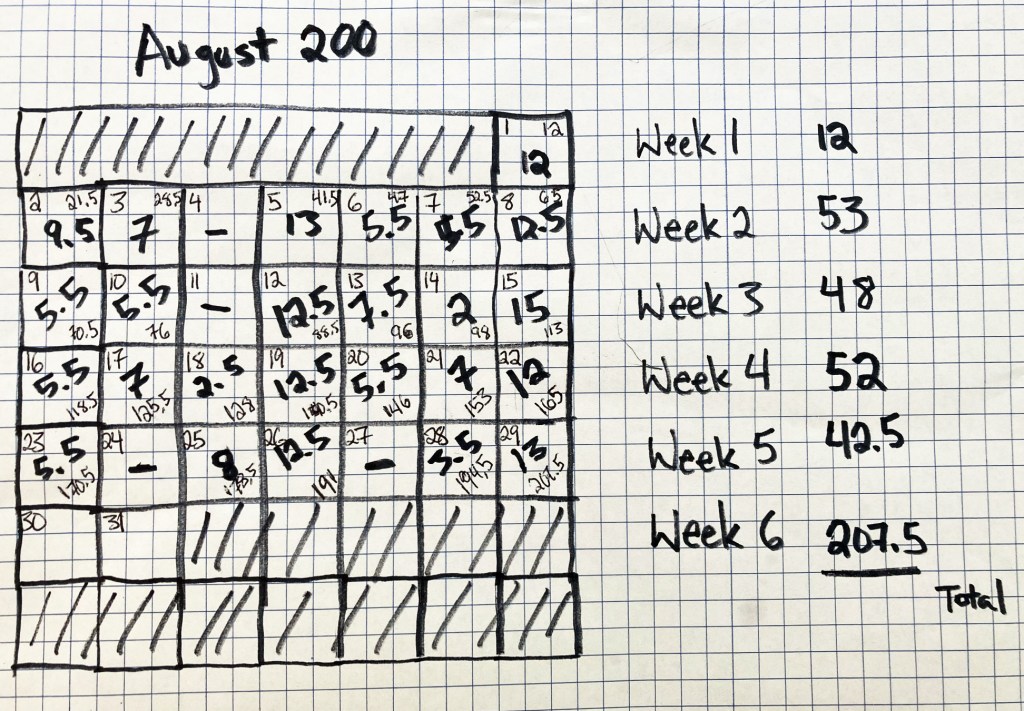 August 200
1 12
12
Week 1 12
2 21.5 3 28.5 4 5 41.5 6 47 7 52.5 8 65
9.5 7 - 13 5.5 5.5 12.5
Week 2 53
9 10 11 12 13 14 15
5.5 5.5 - 12.5 7.5 2 15
70.5 76 88.5 96 98 113
Week 3 48
16 17 18 19 20 21 22
5.5 7 2.5 12.5 5.5 7 12
118.5 125.5 128 146 153 165
Week 4 52
23 24 25 26 27 28 29
5.5 - 8 12.5 - 3.5 13
170.5 178.5 191 194.5 207.5
Week 5 42.5
30 31
Week 6 207.5
Total